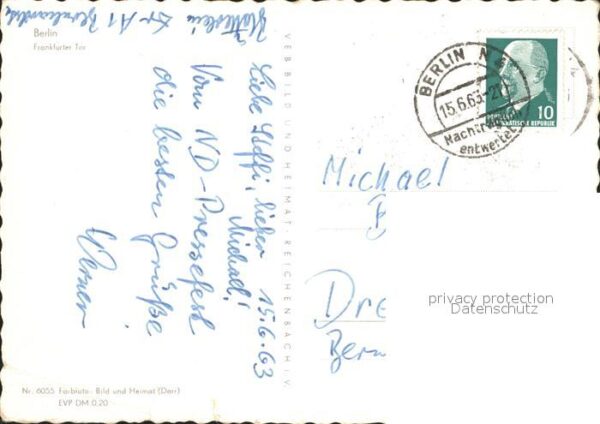 Berlin
Frankfurter Tor
15.6.63
Liebe Steffi, lieber
Michael!
Vom ND-Pressefest
die besten Grüße
Werner
VEB BILD UND HEIMAT REICHENBACH I.V.
Nr. 6055 Farbfoto: Bild und Heimat (Darr)
EVP DM 0.20
BERLIN N 4
15.6.63-2
Nachträglich
entwertet
10
DEUTSCHE
DEMOKRATISCHE REPUBLIK
Michael
Dre
Bern
privacy protection
Datenschutz